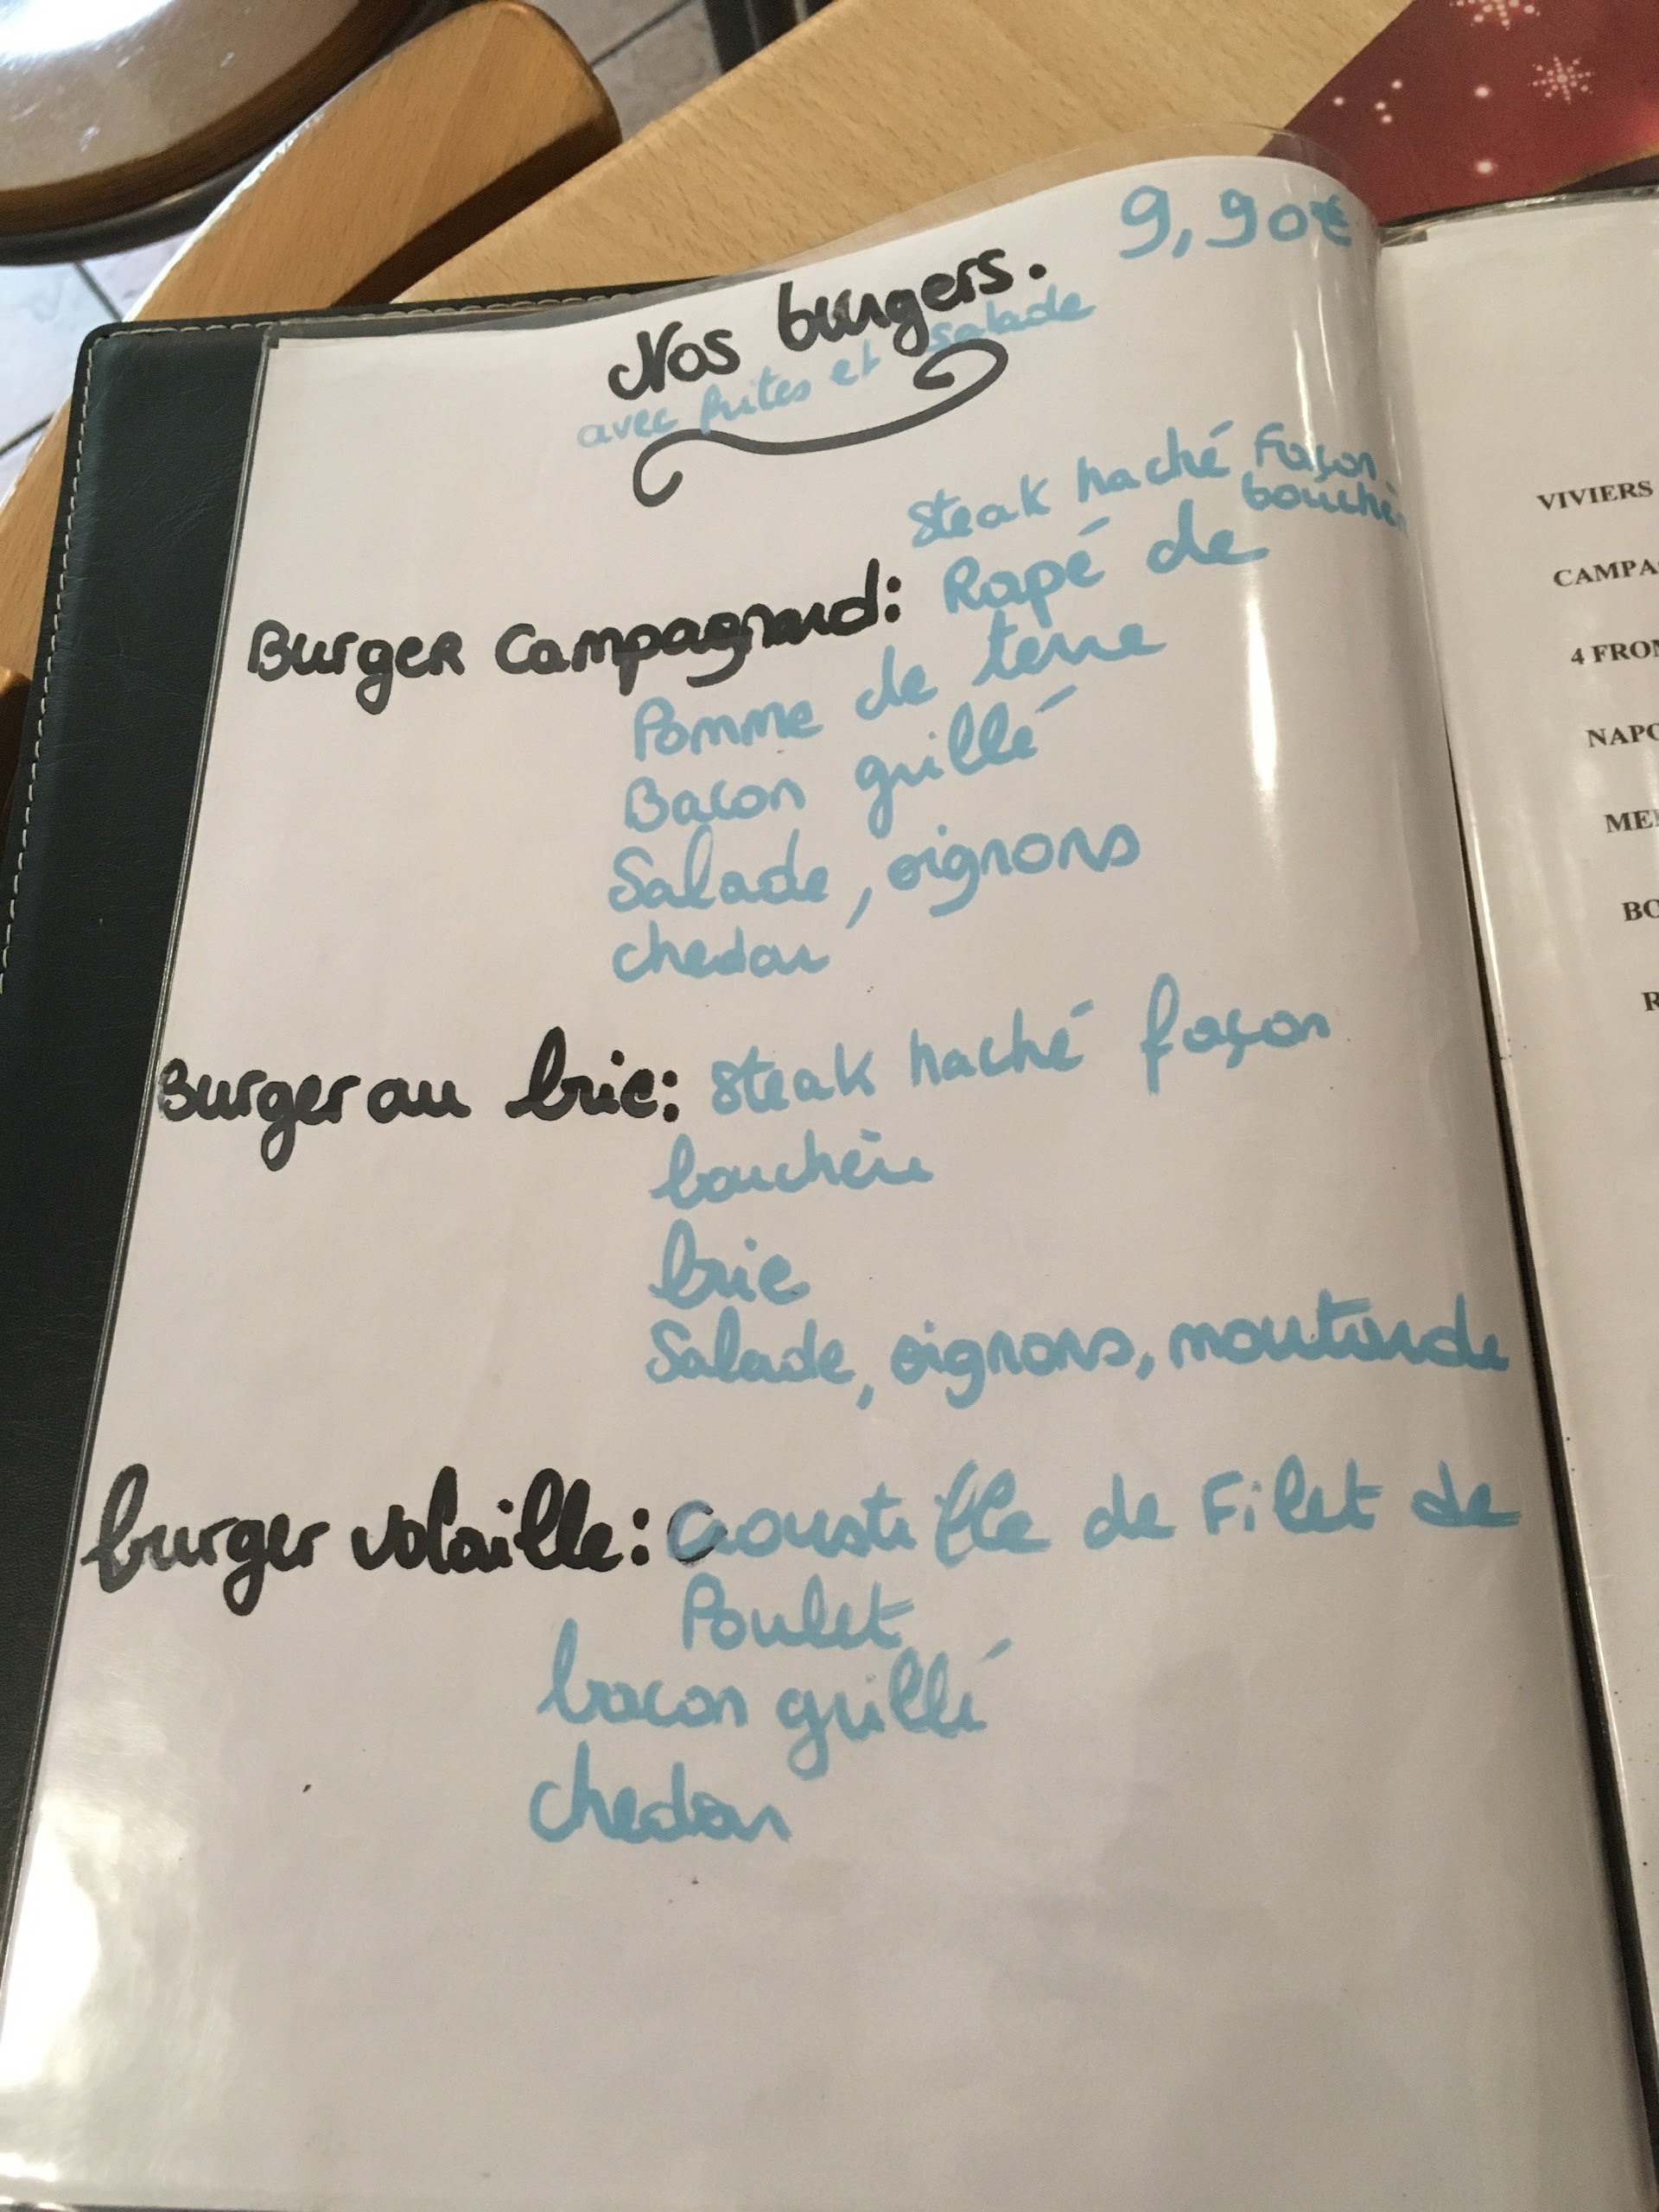 9,90€
Nos burgers.
avec frites et salade
steak haché Façon
bouchère
Burger Campagnard: Rapé de
Pomme de terre
Bacon grillé
Salade, oignons
chedar
Burger au brie: steak haché façon
bouchère
brie
Salade, oignons, moutarde
burger volaille: croustille de Filet de
Poulet
bacon grillé
chedar
VIVIERS
CAMPA
4 FRO
NAPO
ME
BO
R